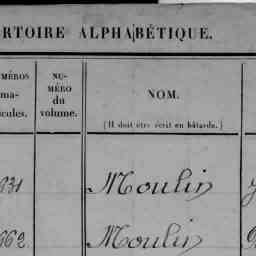 RTOIRE ALPHABÉTIQUE.
MÉROS
ma-
icules.
NU-
MÉRO
du
volume.
NOM.
(Il doit être écrit en bâtarde.)
931 Moulin
662 Moulin